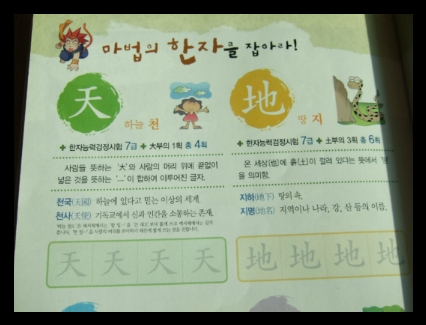 마법의 한자를 잡아라!
天
하늘 천
地
땅 지
✚ 한자능력검정시험 7급 ✚ 大부의 1획 총 4획
✚ 한자능력검정시험 7급 ✚ 土부의 3획 총 6획
사람들 뜻하는 '大'와 사람의 머리 위에 끝없이
넓은 것을 뜻하는 '一'이 합하여 이루어진 글자.
온 세상(也)에 흙(土)이 깔려 있다는 뜻에서
을 의미함.
천국(天國) 하늘에 있다고 믿는 이상의 세계.
천사(天使) 기독교에서 신과 인간을 소통하는 존재.
지하(地下) 땅의 속.
지명(地名) 지역이나 나라, 강, 산 등의 이름.
天 天 天 天
地 地 地 地